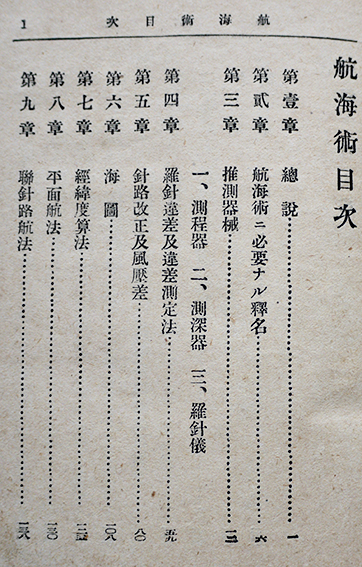 航海術目次 1
航海術目次
第壹章 總說 一
第貳章 航海術ニ必要ナル釋名 六
第三章 推測器械 三
一、測程器 二、測深器 三、羅針儀
第四章 羅針違差及違差測定法 五九
第五章 針路改正及風壓差 八〇
第六章 海圖 一〇八
第七章 經緯度算法
第八章 平面航法 一三〇
第九章 聯針路航法 一三八